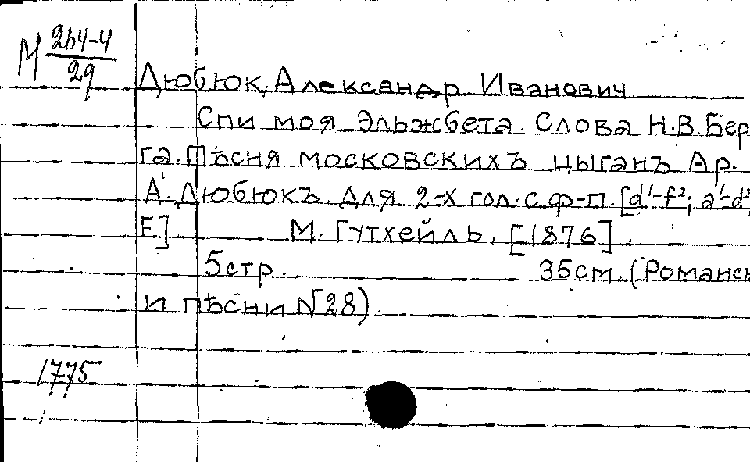 М 264-4
29
Дюбюк, Александр Иванович
Спи моя Эльжбета. Слова Н.В. Бер
га. Пѣсня московскихъ цыганъ Ар.
А. Дюбюкъ для 2-х гол. с ф-п. [d'-f²; a'-d²
E.] М. Гутхейль, [1876]
5 стр. 35 см. (Романсы
и пѣсни N 28)
1775